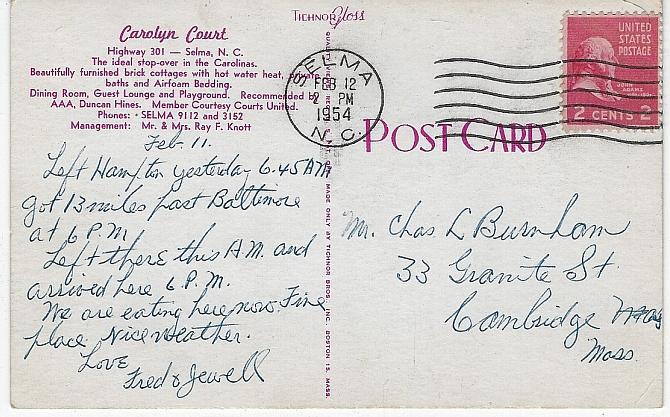 Carolyn Court
Highway 301 — Selma, N. C.
The ideal stop-over in the Carolinas.
Beautifully furnished brick cottages with hot water heat, private
baths and Airfoam Bedding.
Dining Room, Guest Lounge and Playground. Recommended by
AAA, Duncan Hines. Member Courtesy Courts United.
Phones: SELMA 9112 and 3152
Management: Mr. & Mrs. Ray F. Knott
Feb. 11.
Left Hampton yesterday 6.45 AM
got 13 miles past Baltimore
at 6 P.M.
Left there this A.M. and
arrived here 6 P.M.
We are eating here now. Fine
place. Nice weather.
Love
Fred & Jewell
TICHNOR Gloss
MADE ONLY BY TICHNOR BROS. INC. BOSTON 15, MASS.
SELMA
FEB 12
2 PM
1954
N. C.
UNITED
STATES
POSTAGE
JOHN
ADAMS
2 CENTS 2
POST CARD
Mr. Chas L Burnham
33 Granite St.
Cambridge
Mass.